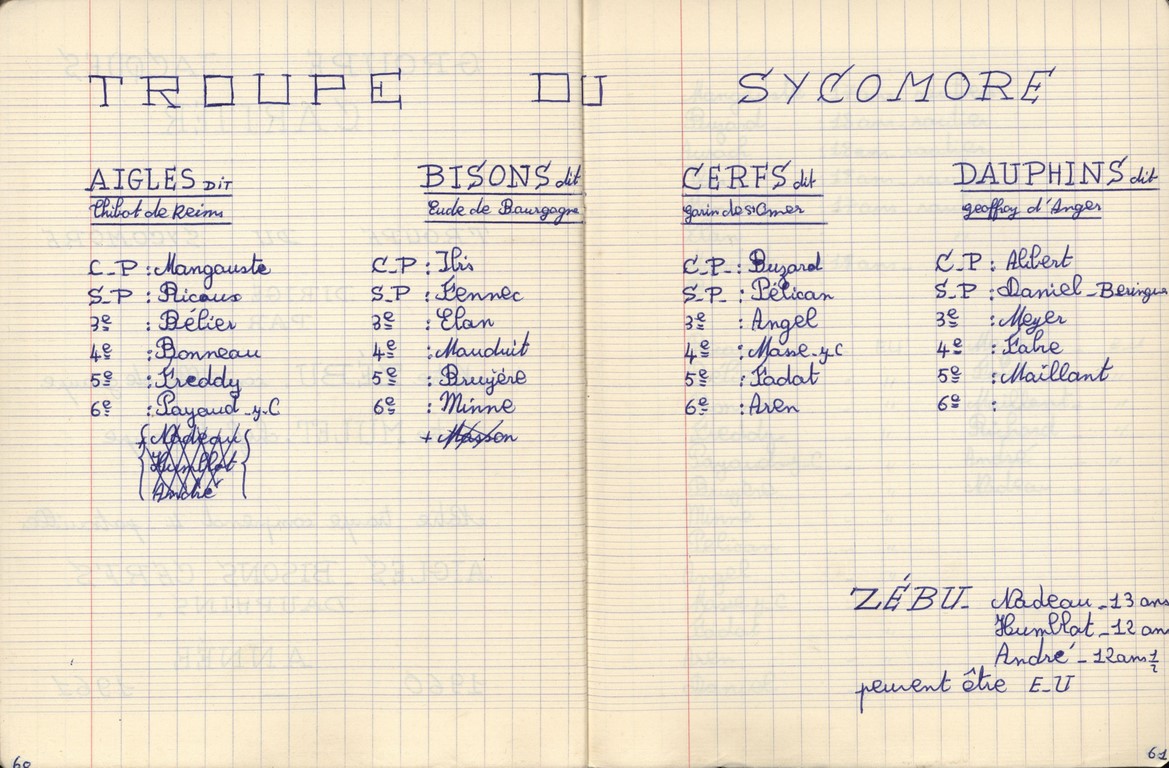 TROUPE DU SYCOMORE
AIGLES DIT
Thibot de Reims
C_P : Mangouste
S_P : Ricoux
3e : Bélier
4e : Bonneau
5e : Freddy
6e : Payaud_y.C
Nadeau
Humblot
André
BISONS dit
Eude de Bourgogne
C_P : Ibis
S_P : Fennec
3e : Elan
4e : Mauduit
5e : Bruyère
6e : Minne
+ Masson
CERFS dit
garin de St Omer
C_P_ : Buzard
S_P_ : Pélican
3e : Angel
4e : Masse_y.C
5e : Fadat
6e : Aren
DAUPHINS dit
geoffroy d'Anger
C_P : Alibert
S_P : Daniel_Beringue
3e : Meyer
4e : Fabre
5e : Maillant
6e :
ZÉBU_ Nadeau_13 ans
Humblot_12 an
André_12ans 1/2
peuvent être E_U
60
61